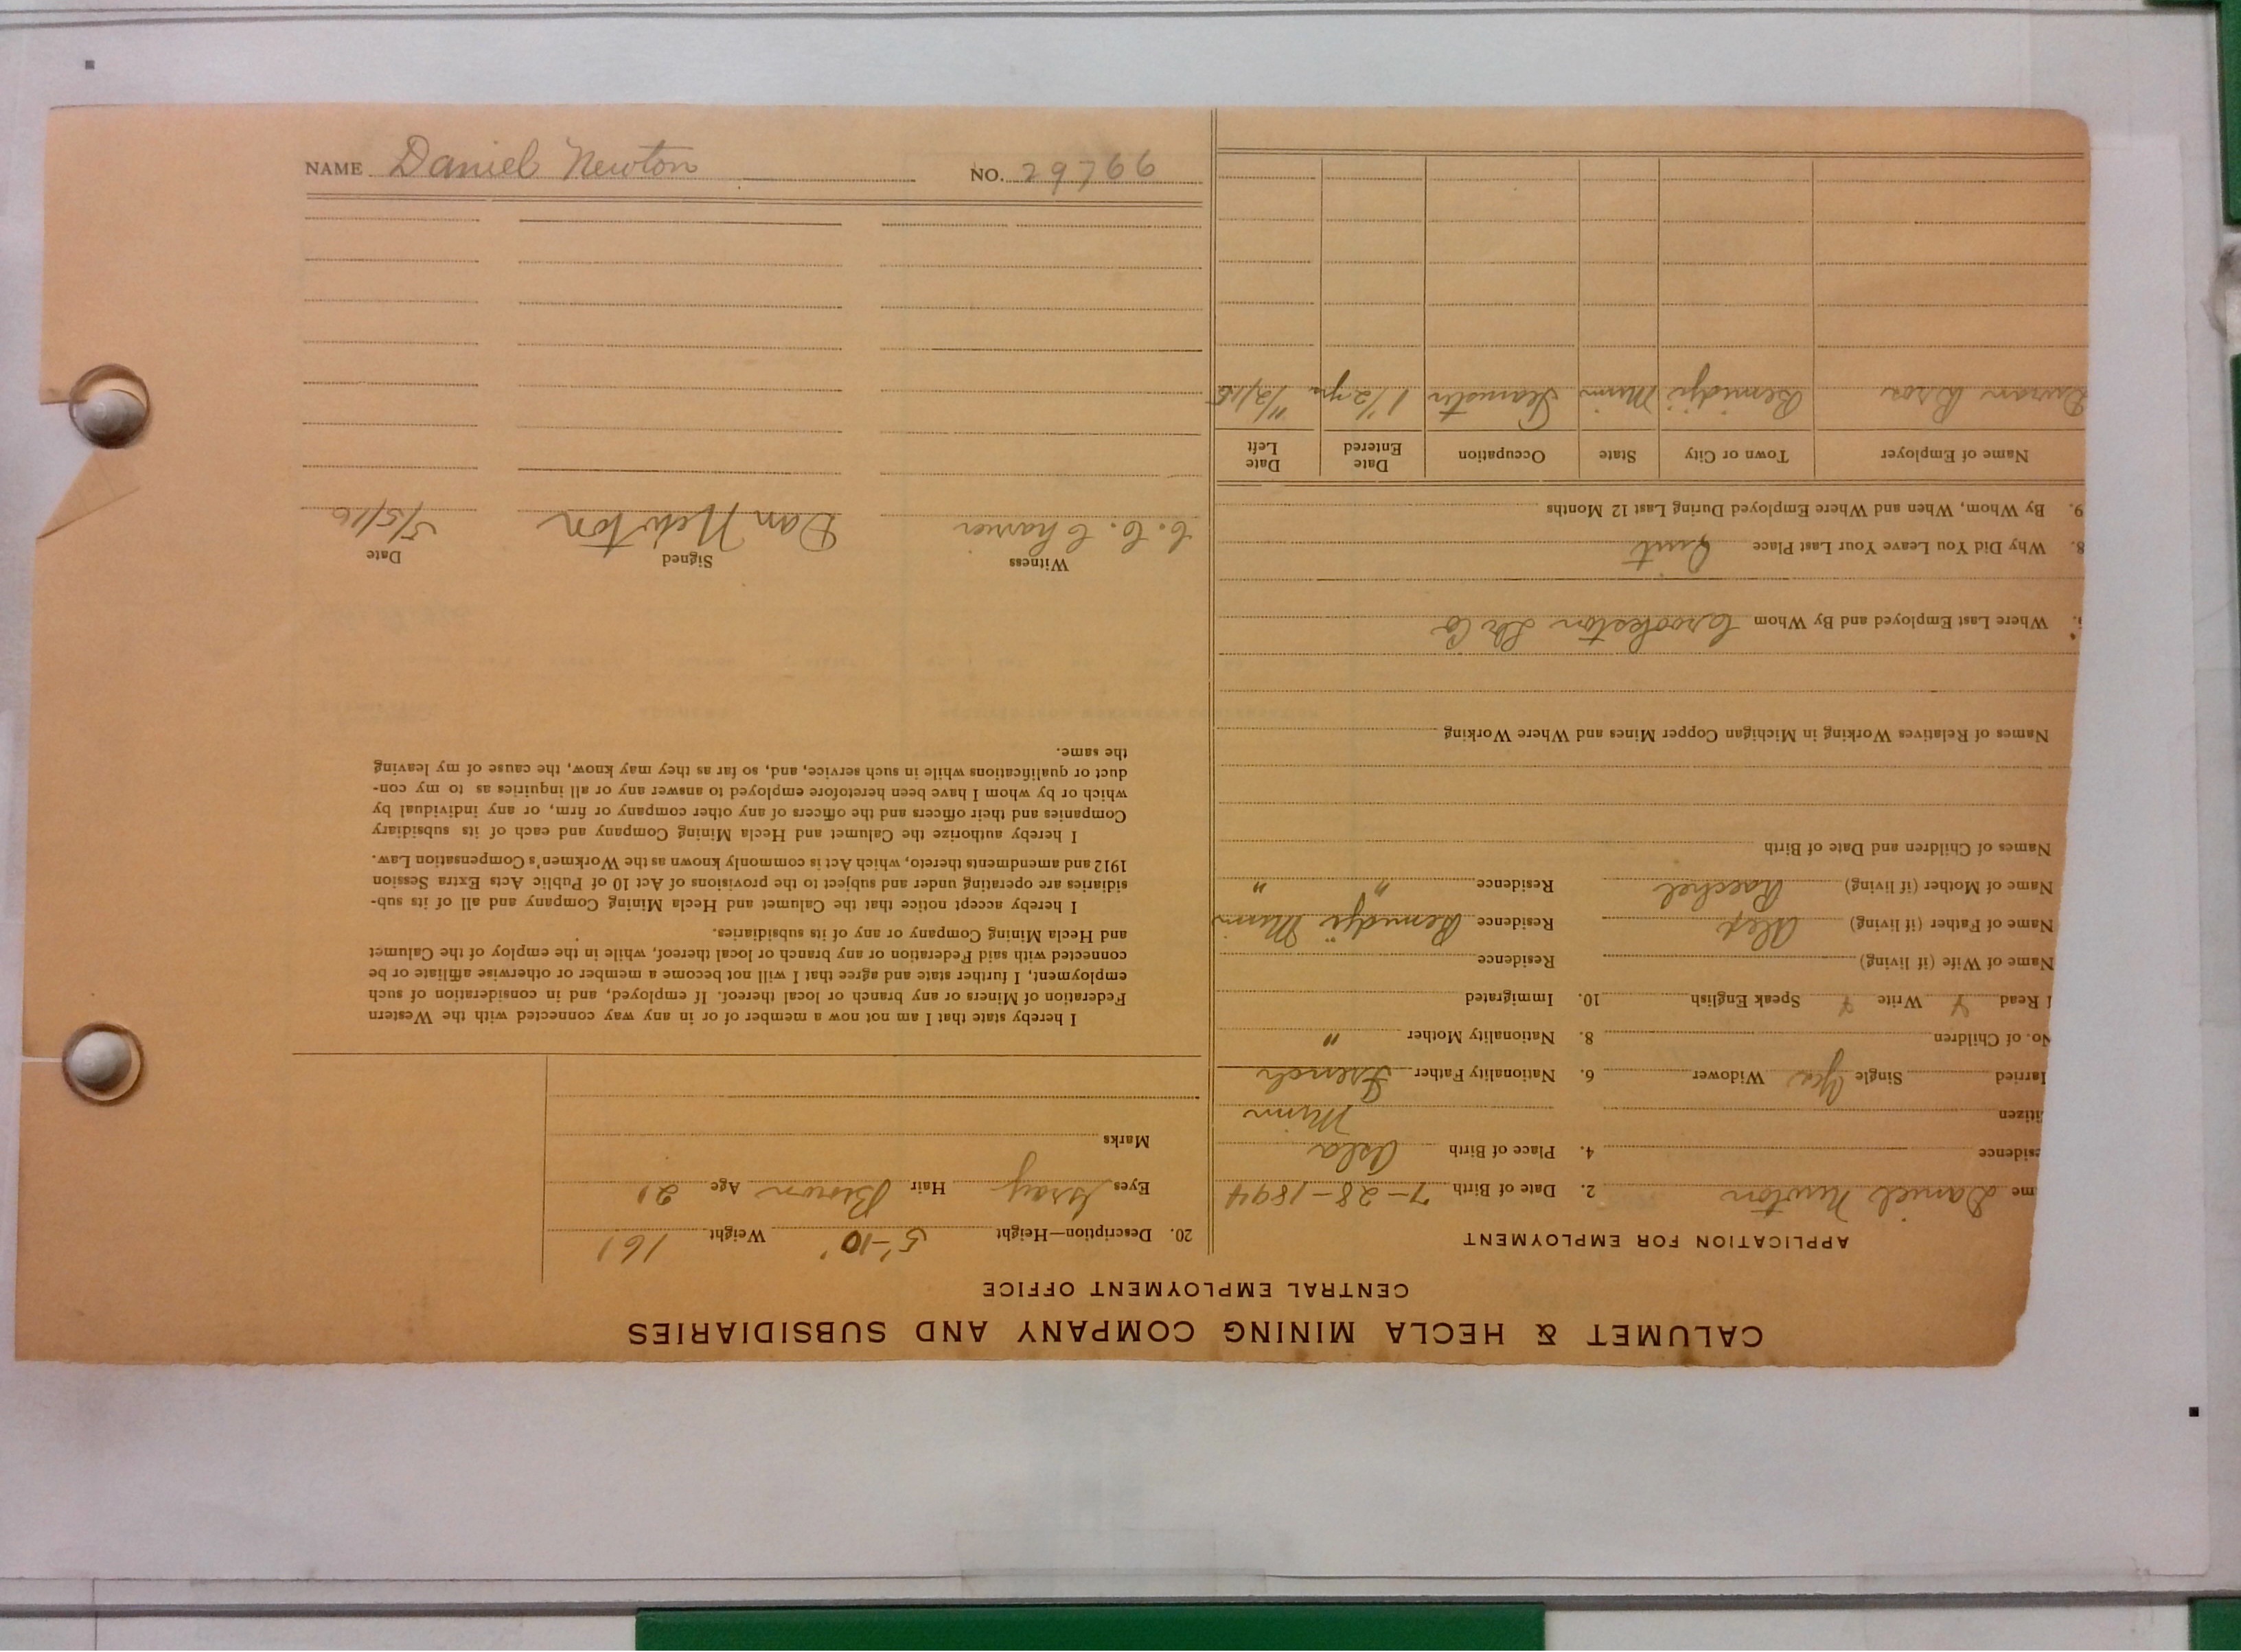 NAME Daniel Newton NO. 29766
CALUMET & HECLA MINING COMPANY AND SUBSIDIARIES
CENTRAL EMPLOYMENT OFFICE
APPLICATION FOR EMPLOYMENT
me Daniel Newton 2. Date of Birth 7-28-1894
esidence 4. Place of Birth Asla
itizen Minn
arried Single Yes Widower 6. Nationality Father French
No. of Children 8. Nationality Mother "
Read Y Write Y Speak English 10. Immigrated
Name of Wife (if living) Residence
Name of Father (if living) Alex Residence Bemidji Minn
Name of Mother (if living) Raechel Residence " "
Names of Children and Date of Birth
Names of Relatives Working in Michigan Copper Mines and Where Working
Where Last Employed and By Whom Crookston Lbr Co
8. Why Did You Leave Your Last Place Quit
9. By Whom, When and Where Employed During Last 12 Months
Name of Employer Town or City State Occupation Date Entered Date Left
Duran Bros Bemidji Minn Teamster 1 1/2 yr 11/2/15
20. Description—Height 5'-10" Weight 161
Eyes Gray Hair Brown Age 21
Marks
I hereby state that I am not now a member of or in any way connected with the Western
Federation of Miners or any branch or local thereof. If employed, and in consideration of such
employment, I further state and agree that I will not become a member or otherwise affiliate or be
connected with said Federation or any branch or local thereof, while in the employ of the Calumet
and Hecla Mining Company or any of its subsidiaries.
I hereby accept notice that the Calumet and Hecla Mining Company and all of its sub-
sidiaries are operating under and subject to the provisions of Act 10 of Public Acts Extra Session
1912 and amendments thereto, which Act is commonly known as the Workmen's Compensation Law.
I hereby authorize the Calumet and Hecla Mining Company and each of its subsidiary
Companies and their officers and the officers of any other company or firm, or any individual by
which or by whom I have been heretofore employed to answer any or all inquiries as to my con-
duct or qualifications while in such service, and, so far as they may know, the cause of my leaving
the same.
Witness Signed Date
C. C. Dan Newton 3/5/16